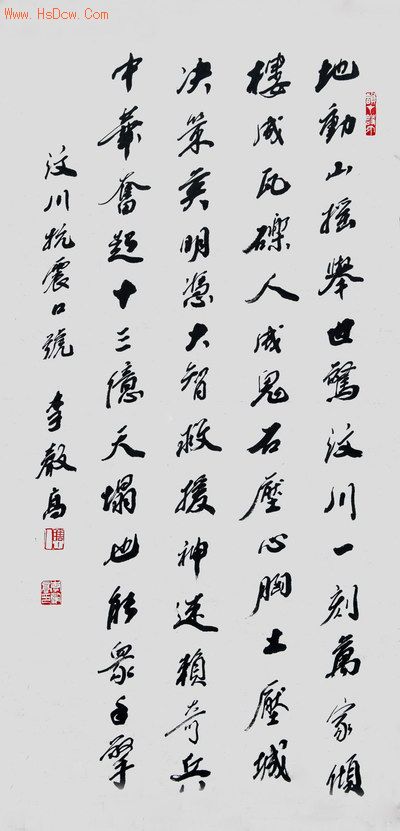 www.HsDcw.com
地動山搖舉世驚汶川一刻萬家傾
樓成瓦礫人成鬼石壓心胸土壓城
决策英明憑大智救援神速賴奇兵
中華奮起十三億天塌也能衆手擎
汶川抗震口號 李毅高